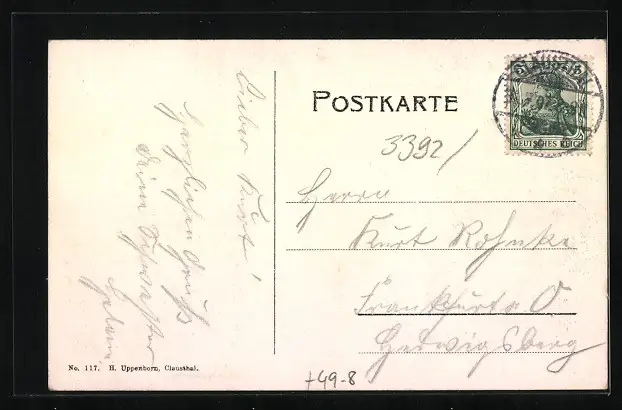 Lieber Kurt!
Herzlichen Gruß
Deine Schwester
POSTKARTE
3392/
Herrn
Kurt Rohnke
Frankfurt a. O.
Hedwigsberg
CLAUSTHAL
DEUTSCHES REICH
No. 117. H. Uppenborn, Clausthal.
+49-8